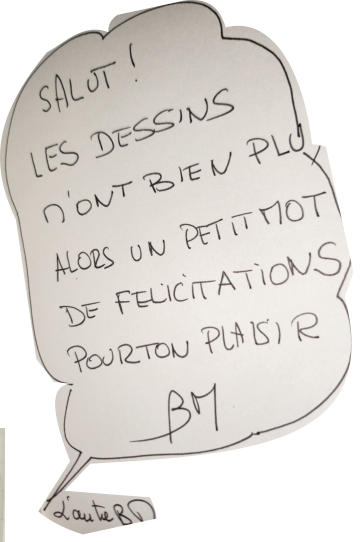 SALUT !
LES DESSINS
M'ONT BIEN PLU,
ALORS UN PETIT MOT
DE FELICITATIONS
POUR TON PLAISIR
BM
L'autre BD